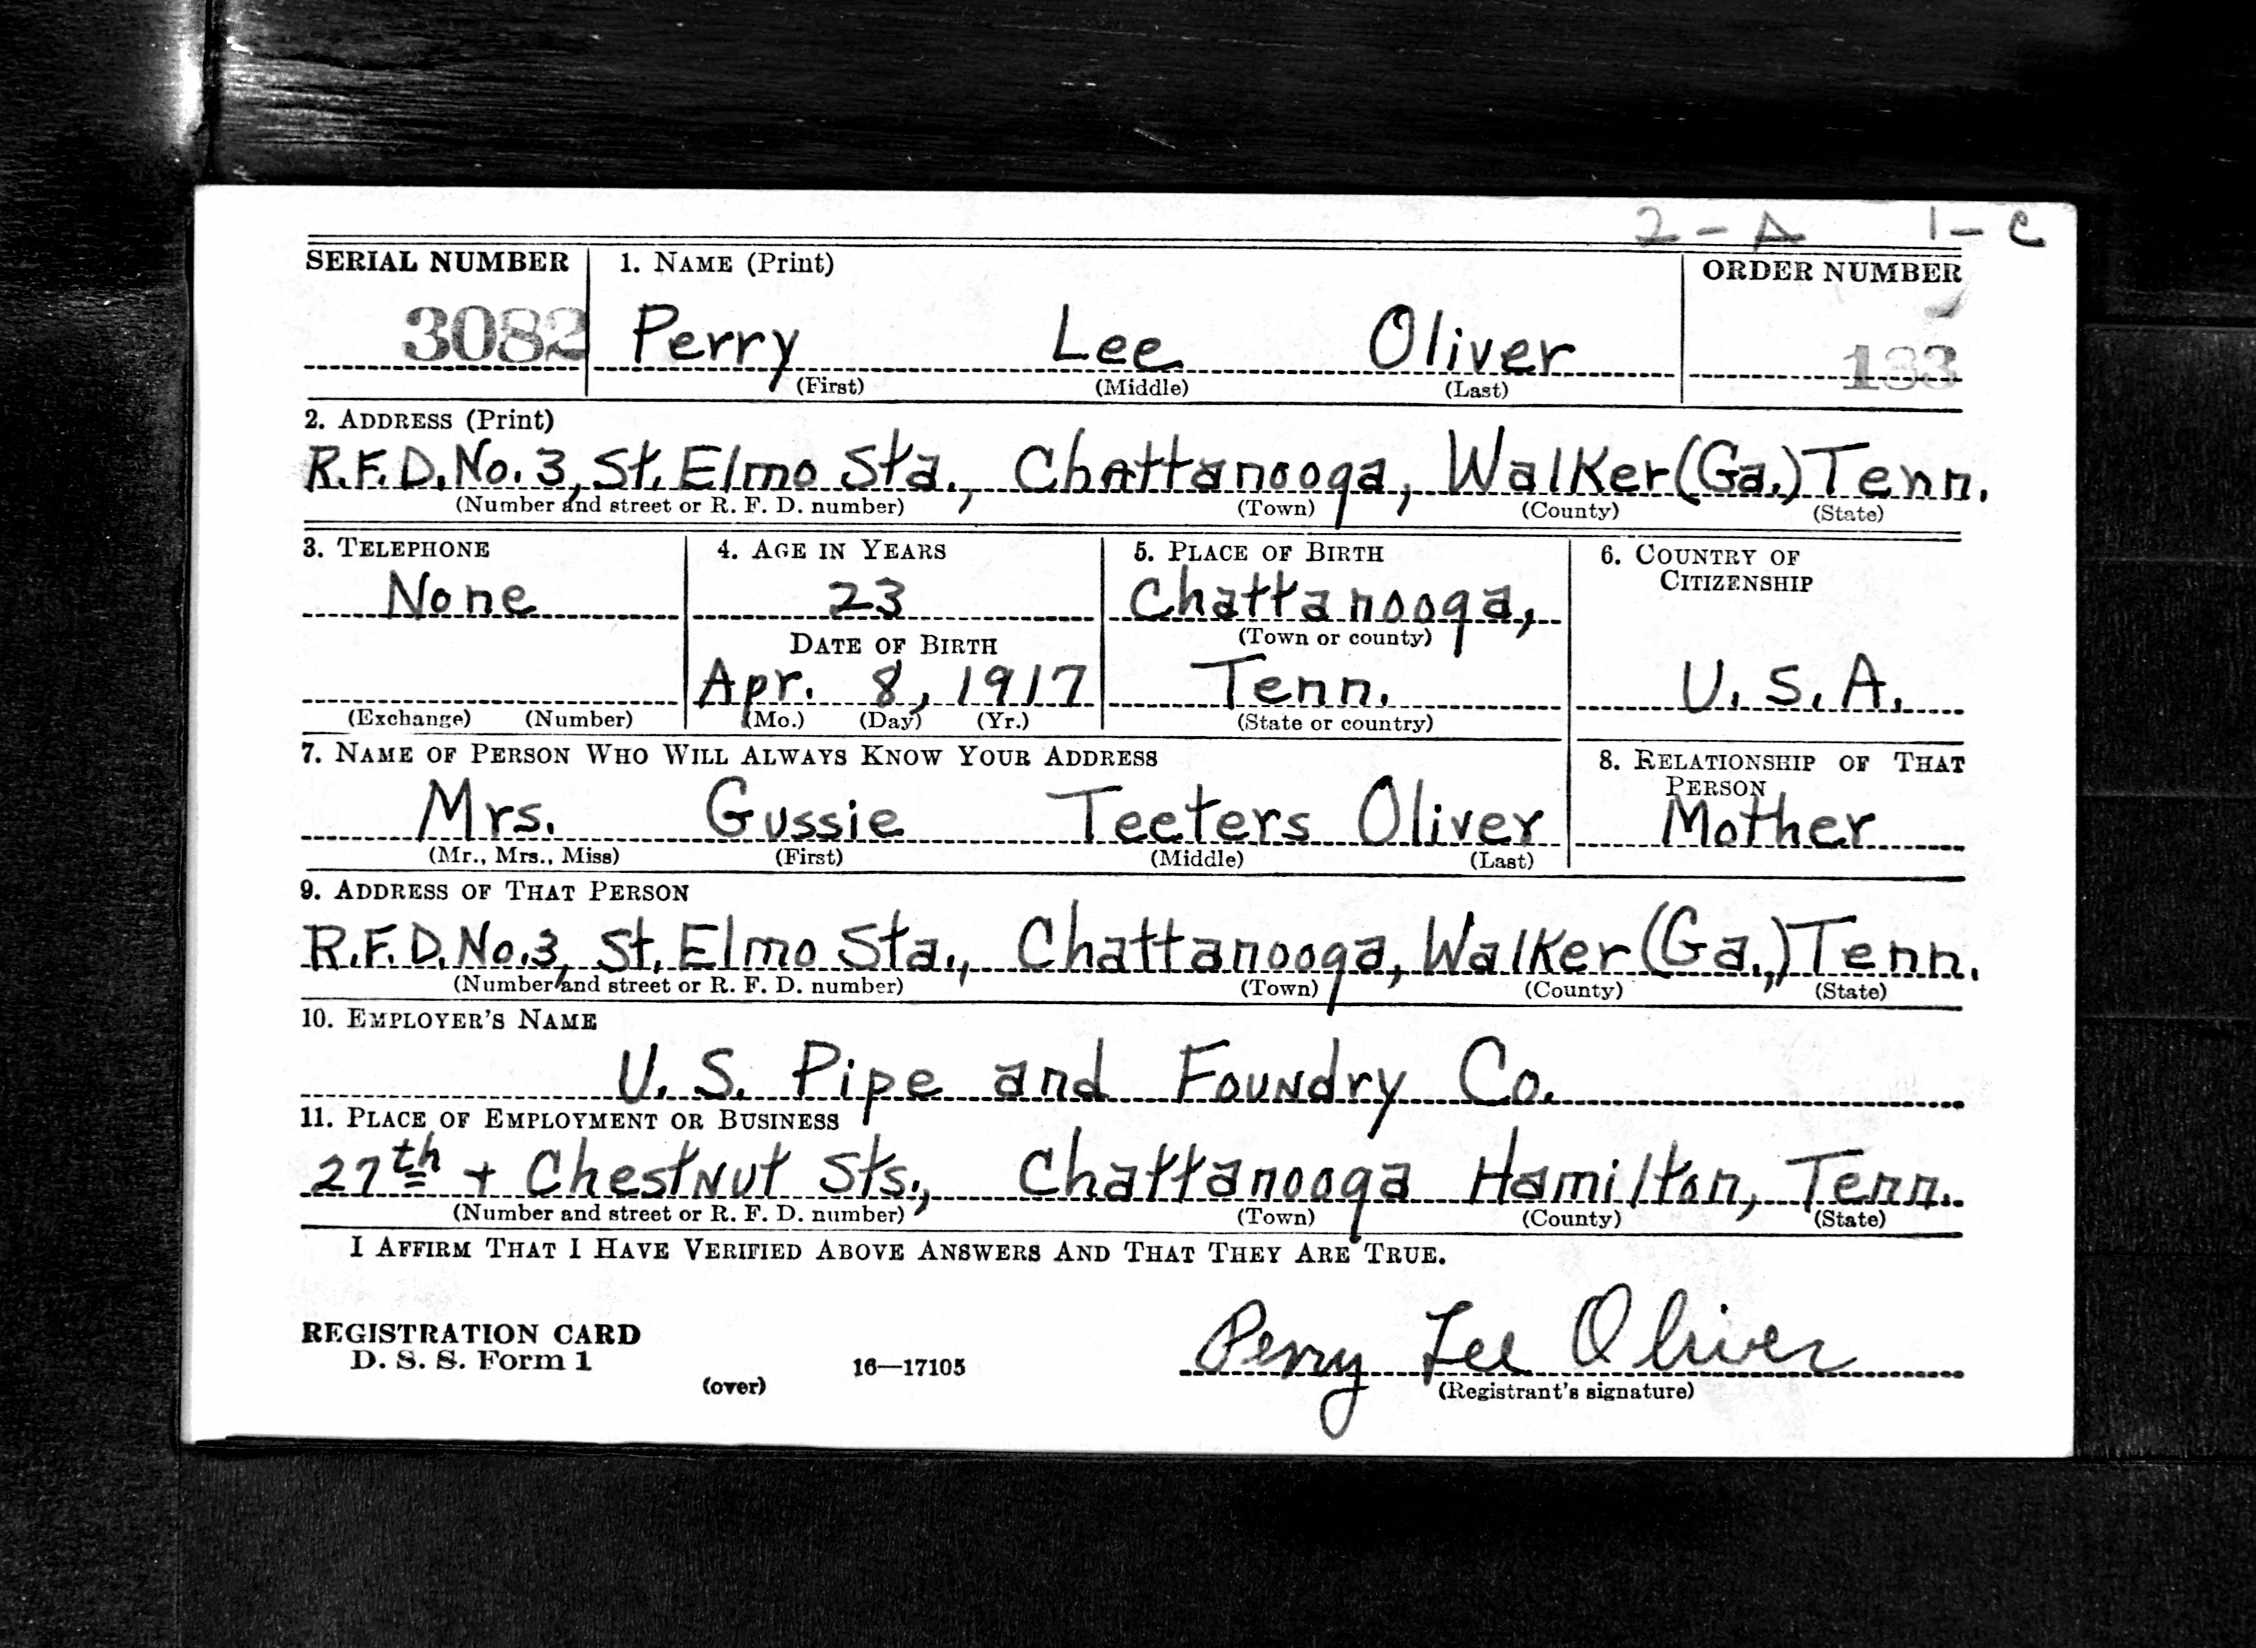 2-A 1-C
SERIAL NUMBER 1. NAME (Print) ORDER NUMBER
3082 Perry Lee Oliver 133
(First) (Middle) (Last)
2. ADDRESS (Print)
R.F.D. No. 3, St. Elmo Sta., Chattanooga, Walker (Ga.) Tenn.
(Number and street or R. F. D. number) (Town) (County) (State)
3. TELEPHONE 4. AGE IN YEARS 5. PLACE OF BIRTH 6. COUNTRY OF CITIZENSHIP
None 23 Chattanooga,
DATE OF BIRTH (Town or county)
Apr. 8, 1917 Tenn. U.S.A.
(Exchange) (Number) (Mo.) (Day) (Yr.) (State or country)
7. NAME OF PERSON WHO WILL ALWAYS KNOW YOUR ADDRESS 8. RELATIONSHIP OF THAT PERSON
Mrs. Gussie Teeters Oliver Mother
(Mr., Mrs., Miss) (First) (Middle) (Last)
9. ADDRESS OF THAT PERSON
R.F.D. No. 3, St. Elmo Sta., Chattanooga, Walker (Ga.,) Tenn.
(Number and street or R. F. D. number) (Town) (County) (State)
10. EMPLOYER'S NAME
U. S. Pipe and Foundry Co.
11. PLACE OF EMPLOYMENT OR BUSINESS
27th + Chestnut Sts., Chattanooga Hamilton, Tenn.
(Number and street or R. F. D. number) (Town) (County) (State)
I AFFIRM THAT I HAVE VERIFIED ABOVE ANSWERS AND THAT THEY ARE TRUE.
REGISTRATION CARD
D. S. S. Form 1 Perry Lee Oliver
(over) 16—17105 (Registrant's signature)